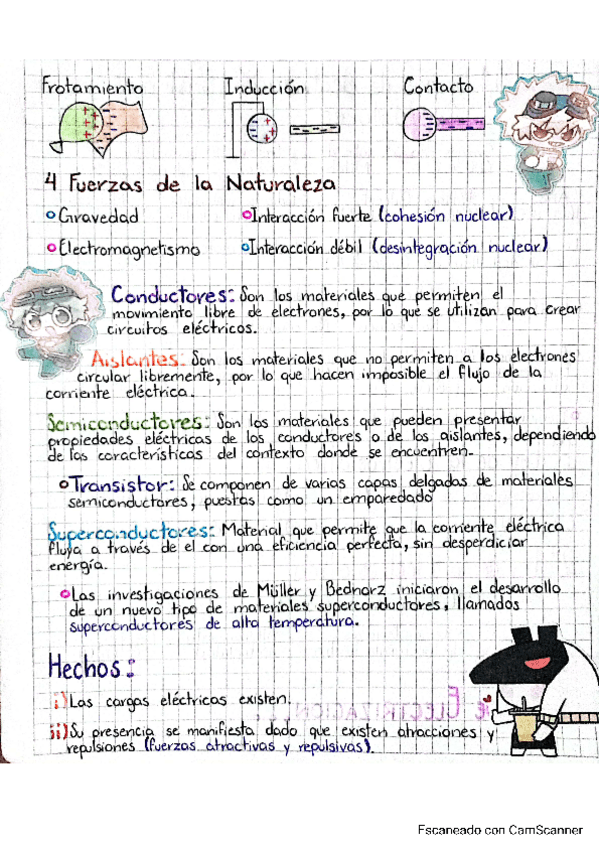 Frotamiento Inducción Contacto
4 Fuerzas de la Naturaleza
Gravedad Interacción fuerte (cohesión nuclear)
Electromagnetismo Interacción débil (desintegración nuclear)
Conductores: Son los materiales que permiten el
movimiento libre de electrones, por lo que se utilizan para crear
circuitos eléctricos.
Aislantes: Son los materiales que no permiten a los electrones
circular libremente, por lo que hacen imposible el flujo de la
corriente eléctrica.
Semiconductores: Son los materiales que pueden presentar
propiedades eléctricas de los conductores o de los aislantes, dependiendo
de las características del contexto donde se encuentren.
Transistor: Se componen de varias capas delgadas de materiales
semiconductores, puestas como un emparedado
Superconductores: Material que permite que la corriente eléctrica
fluya a través de el con una eficiencia perfecta, sin desperdiciar
energía.
Las investigaciones de Müller y Bednorz iniciaron el desarrollo
de un nuevo tipo de materiales superconductores, llamados
superconductores de alta temperatura.
Hechos:
i) Las cargas eléctricas existen.
ii) Su presencia se manifiesta dado que existen atracciones y
repulsiones (fuerzas atractivas y repulsivas).
Escaneado con CamScanner